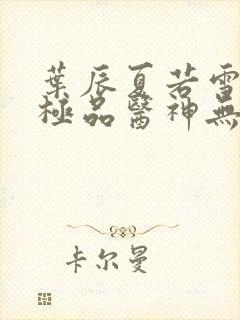 葉辰夏若雪
極品醫神無
卡尔曼